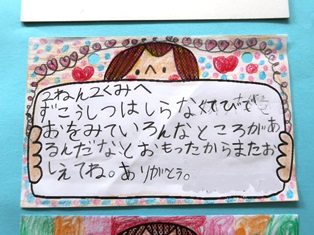 2ねん2くみへ
ずこうしつはしらなくてびで
おをみていろんなところがあ
るんだなとおもったからまたお
しえてね。ありがとう。